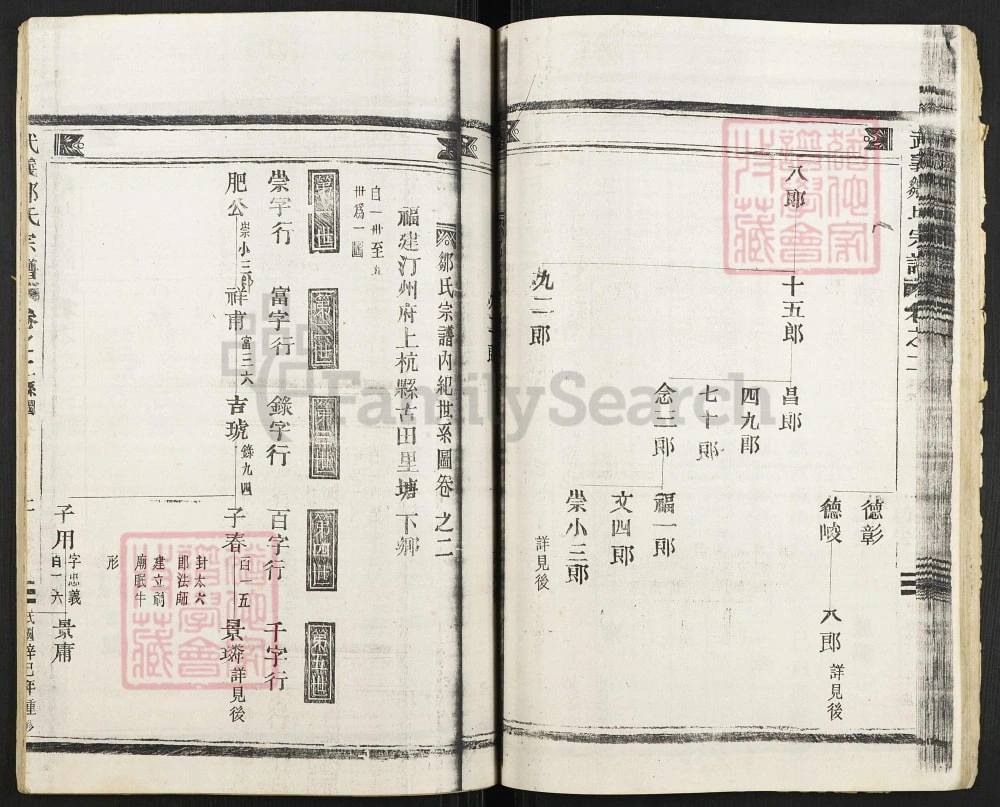 武義鄒氏宗譜
卷之二
德彰
德峻
八郎
詳見後
八郎
十五郎
昌郎
四九郎
七十郎
念三郎
福一郎
文四郎
崇小三郎
詳見後
九二郎
鄒氏宗譜內紀世系圖卷之二
福建汀州府上杭縣古田里塘下鄉
自一世至五
世爲一圖
第一世
第二世
第三世
第四世
第五世
崇字行
富字行
錄字行
百字行
千字行
肥公
崇小三郎
祥甫
富三六
吉琥
錄九四
子春
百一五
景璘
詳見後
封太六
郎法師
建立祠
廟眠牛
形
子用
字忠義
百一六
景庸
武義鄒氏宗譜
卷之二
系圖
一
民國辛巳年重修
FamilySearch